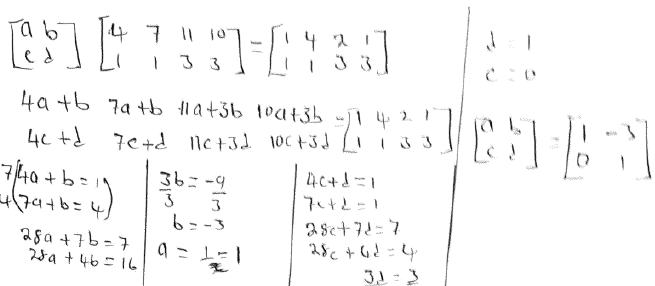 [a b
c d] [4 7 11 10
1 1 3 3] = [1 4 2 1
1 1 3 3]
4a+b 7a+b 11a+3b 10a+3b
4c+d 7c+d 11c+3d 10c+3d = [1 4 2 1
1 1 3 3]
7(4a+b=1)
4(7a+b=4)
28a+7b=7
28a+4b=16
3b/3 = -9/3
b=-3
a = 1
4c+d=1
7c+d=1
28c+7d=7
28c+4d=4
3d=3
d=1
c=0
[a b
c d] = [1 -3
0 1]